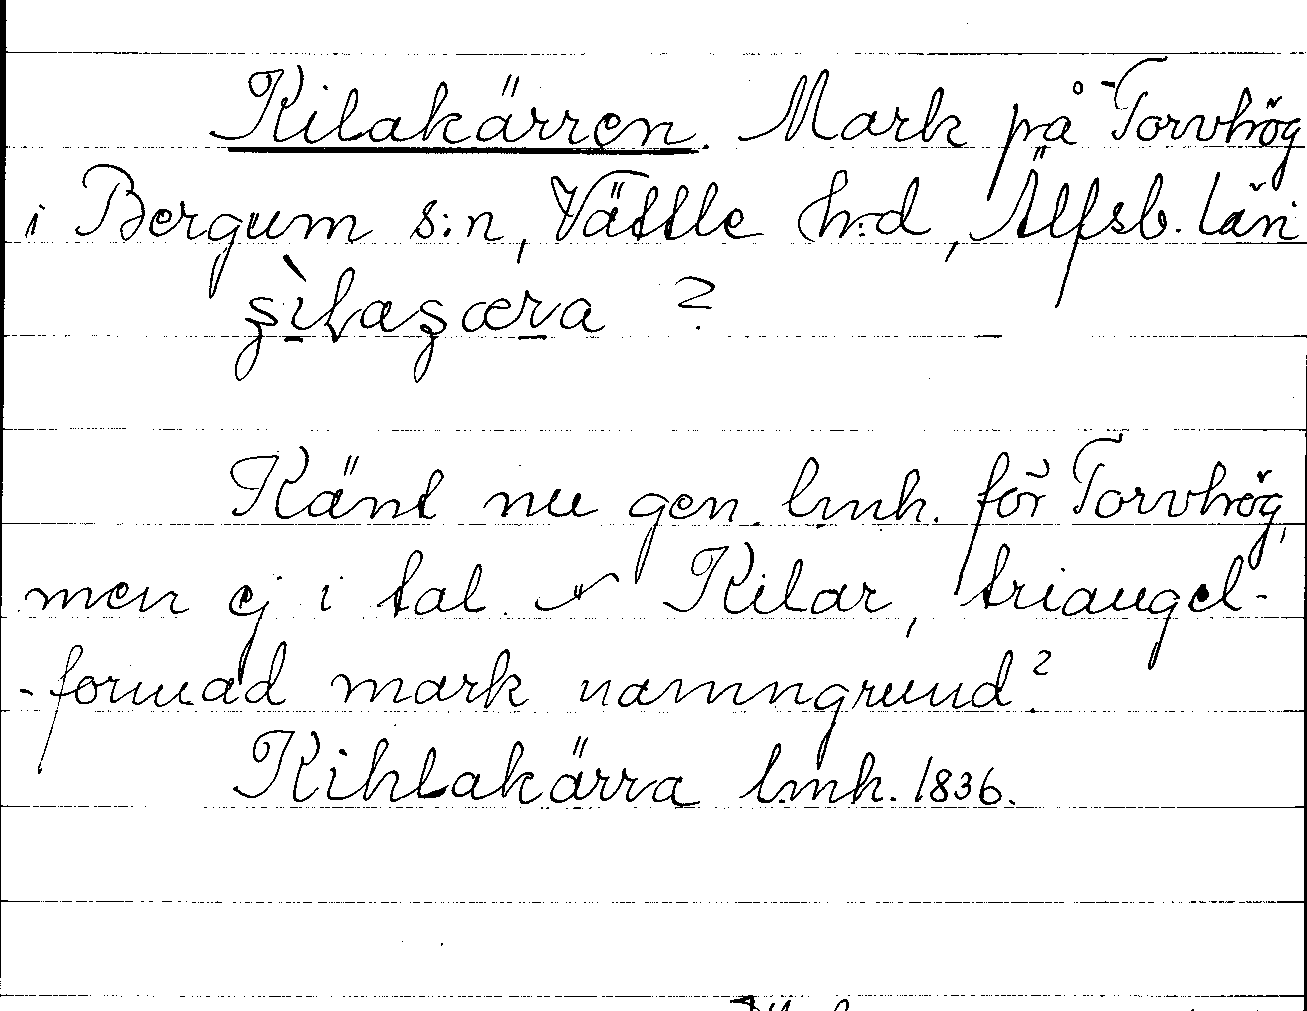 Kilakärren. Mark på Torvhög
i Bergum s:n, Vättle h:d, Älfsb. län
?
Känt nu gen. lmh. för Torvhög,
men ej i tal. Kilar, triangel-
-formad mark namngrund?
Kihlakärra lmh. 1836.